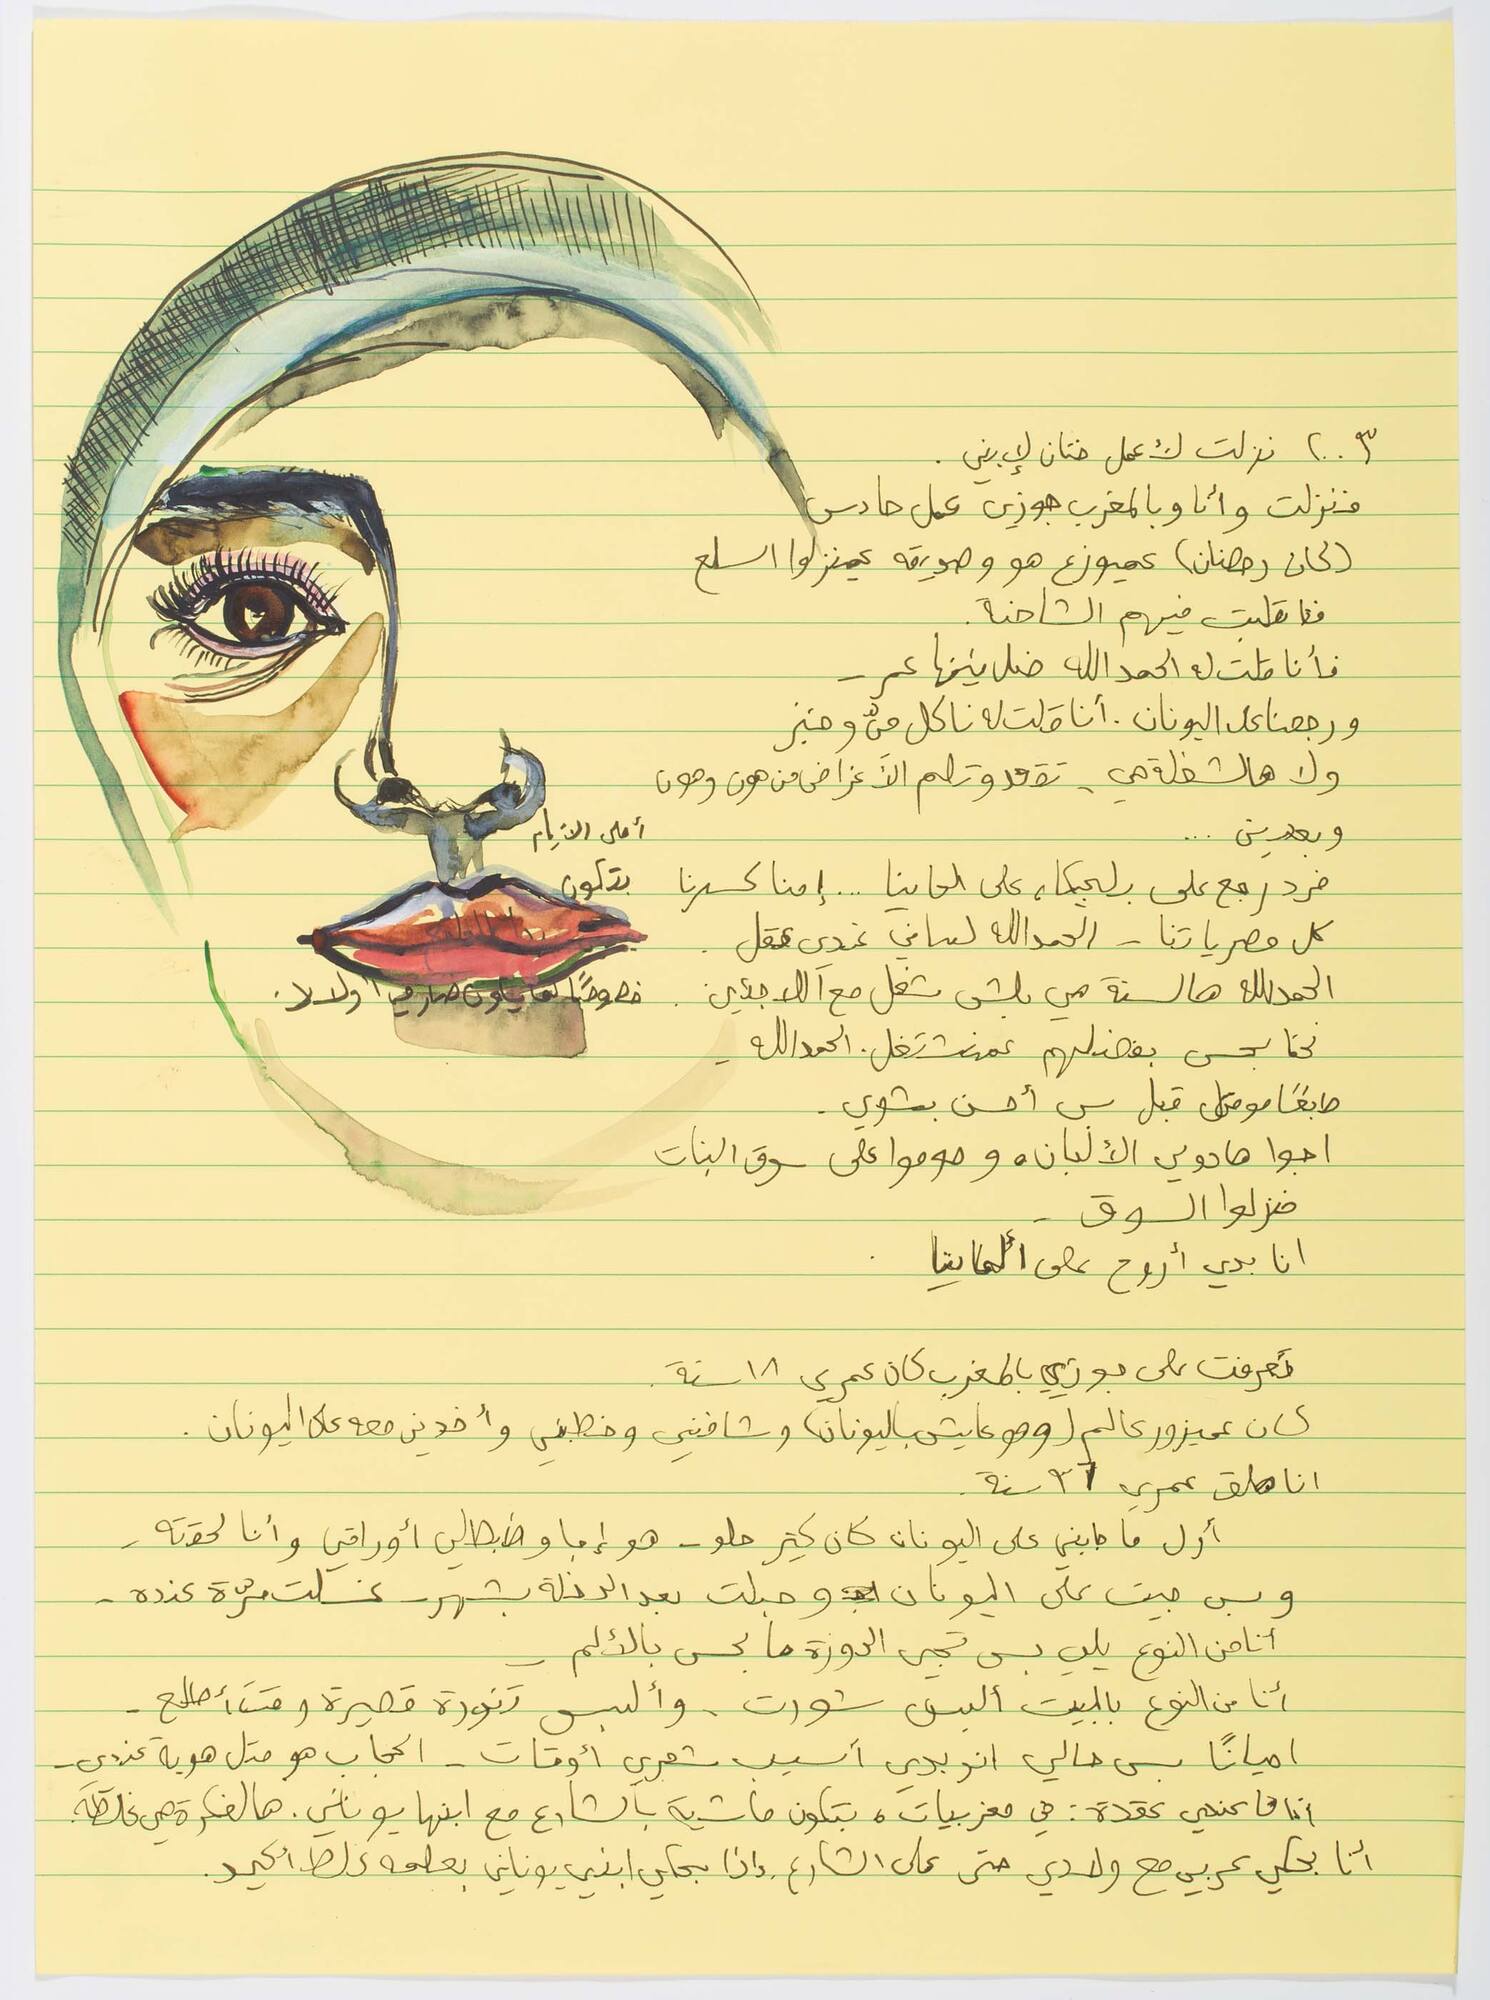 ٢٠٠٣ نزلت لأعمل ختان لإبني.
فنزلت وأنا وبالمغرب جوزي عمل حادس
(كان رمضان) عميوزع هو وصديقه عمينزلوا السلع
فقلبت فيهم الشاحنة.
فأنا قلت له الحمد الله
ورجعنا على اليونان. أنا قلت له ناكل ميّ وخبز
ولا هالشغلة هي - تقعد وتلم الأغراض من هون وهون
وبعدين ...
أحلى الأيام
بتكون
فرد رجع على بلجيكا، على ألمانيا ... إمنا كسرنا
كل مصرياتنا - الحمد الله لساني عندي عقل.
الحمد الله هالسنة هي بلش شغل مع اللاجئين.
خصوصاً لما يكون صار في أولاد.
نحنا بحس بفضلهم عمنشتغل. الحمد الله -
طبعًا مو متل قبل بس أحسن بشوي -
اجوا هادولي الألبان، وهوموا على سوق البنات
فنزلوا السوق -
انا بدي أروح على ألمانيا.
تعرفت على جوزي بالمغرب كان عمري ١٨ سنة.
كان عميزور عالم (وهو عايش باليونان) وشافني وخطبني وأخدني معه على اليونان.
انا هلق عمري ٣٦ سنة.
أول ما جابني على اليونان كان كتير حلو - هو إجا وظبطلي أوراقي وأنا لحقته -
وبس جيت على اليونان وحبلت بعد الدخلة بشهر - غسلت مرّة عنده -
أنا من النوع يلي بس تجي الدورة ما بحس بالألم -
أنا من النوع بالبيت ألبس شورت - وألبس تنورة قصيرة
احيانًا بس حالي انو بدي أسيب شعري أوقات - الحجاب هو متل هوية عندي -
أنا ما عندي عقدة: في مغربيات، بتكون ماشية بالشارع مع ابنها يوناني. هالفكرة هي غلط.
أنا بحكي عربي مع ولادي حتى على الشارع. واذا بحكي ابني يوناني بعلمه غلط أكيد.